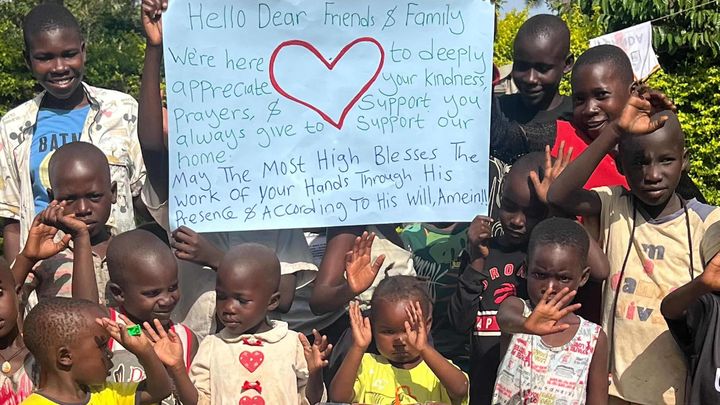 Hello Dear Friends & Family
We're here to deeply
appreciate your kindness,
Prayers, & Support you
always give to Support our
home.
May The Most High Blesses The
Work of Your Hands Through His
Presence & According To His Will, Amein!!
BATMA